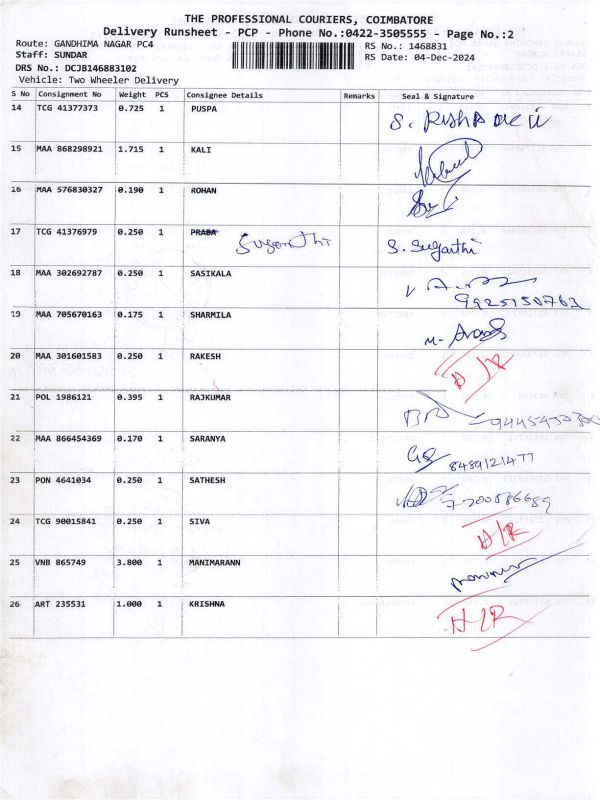 THE PROFESSIONAL COURIERS, COIMBATORE
Delivery Runsheet - PCP - Phone No.:0422-3505555 - Page No.:2
Route: GANDHIMA NAGAR PC4 RS No.: 1468831
Staff: SUNDAR RS Date: 04-Dec-2024
DRS No.: DCJB146883102
Vehicle: Two Wheeler Delivery
S No Consignment No Weight PCS Consignee Details Remarks Seal & Signature
14 TCG 41377373 0.725 1 PUSPA
15 MAA 868298921 1.715 1 KALI
16 MAA 576830327 0.190 1 ROHAN
17 TCG 41376979 0.250 1 PRABA Suganthi S. Suganthi
18 MAA 302692787 0.250 1 SASIKALA
9925150763
19 MAA 705670163 0.175 1 SHARMILA
20 MAA 301601583 0.250 1 RAKESH D/R
21 POL 1986121 0.395 1 RAJKUMAR
22 MAA 866454369 0.170 1 SARANYA 8489121477
23 PON 4641034 0.250 1 SATHESH
24 TCG 90015841 0.250 1 SIVA D/R
25 VNB 865749 3.800 1 MANIMARANN
26 ART 235531 1.000 1 KRISHNA D/R